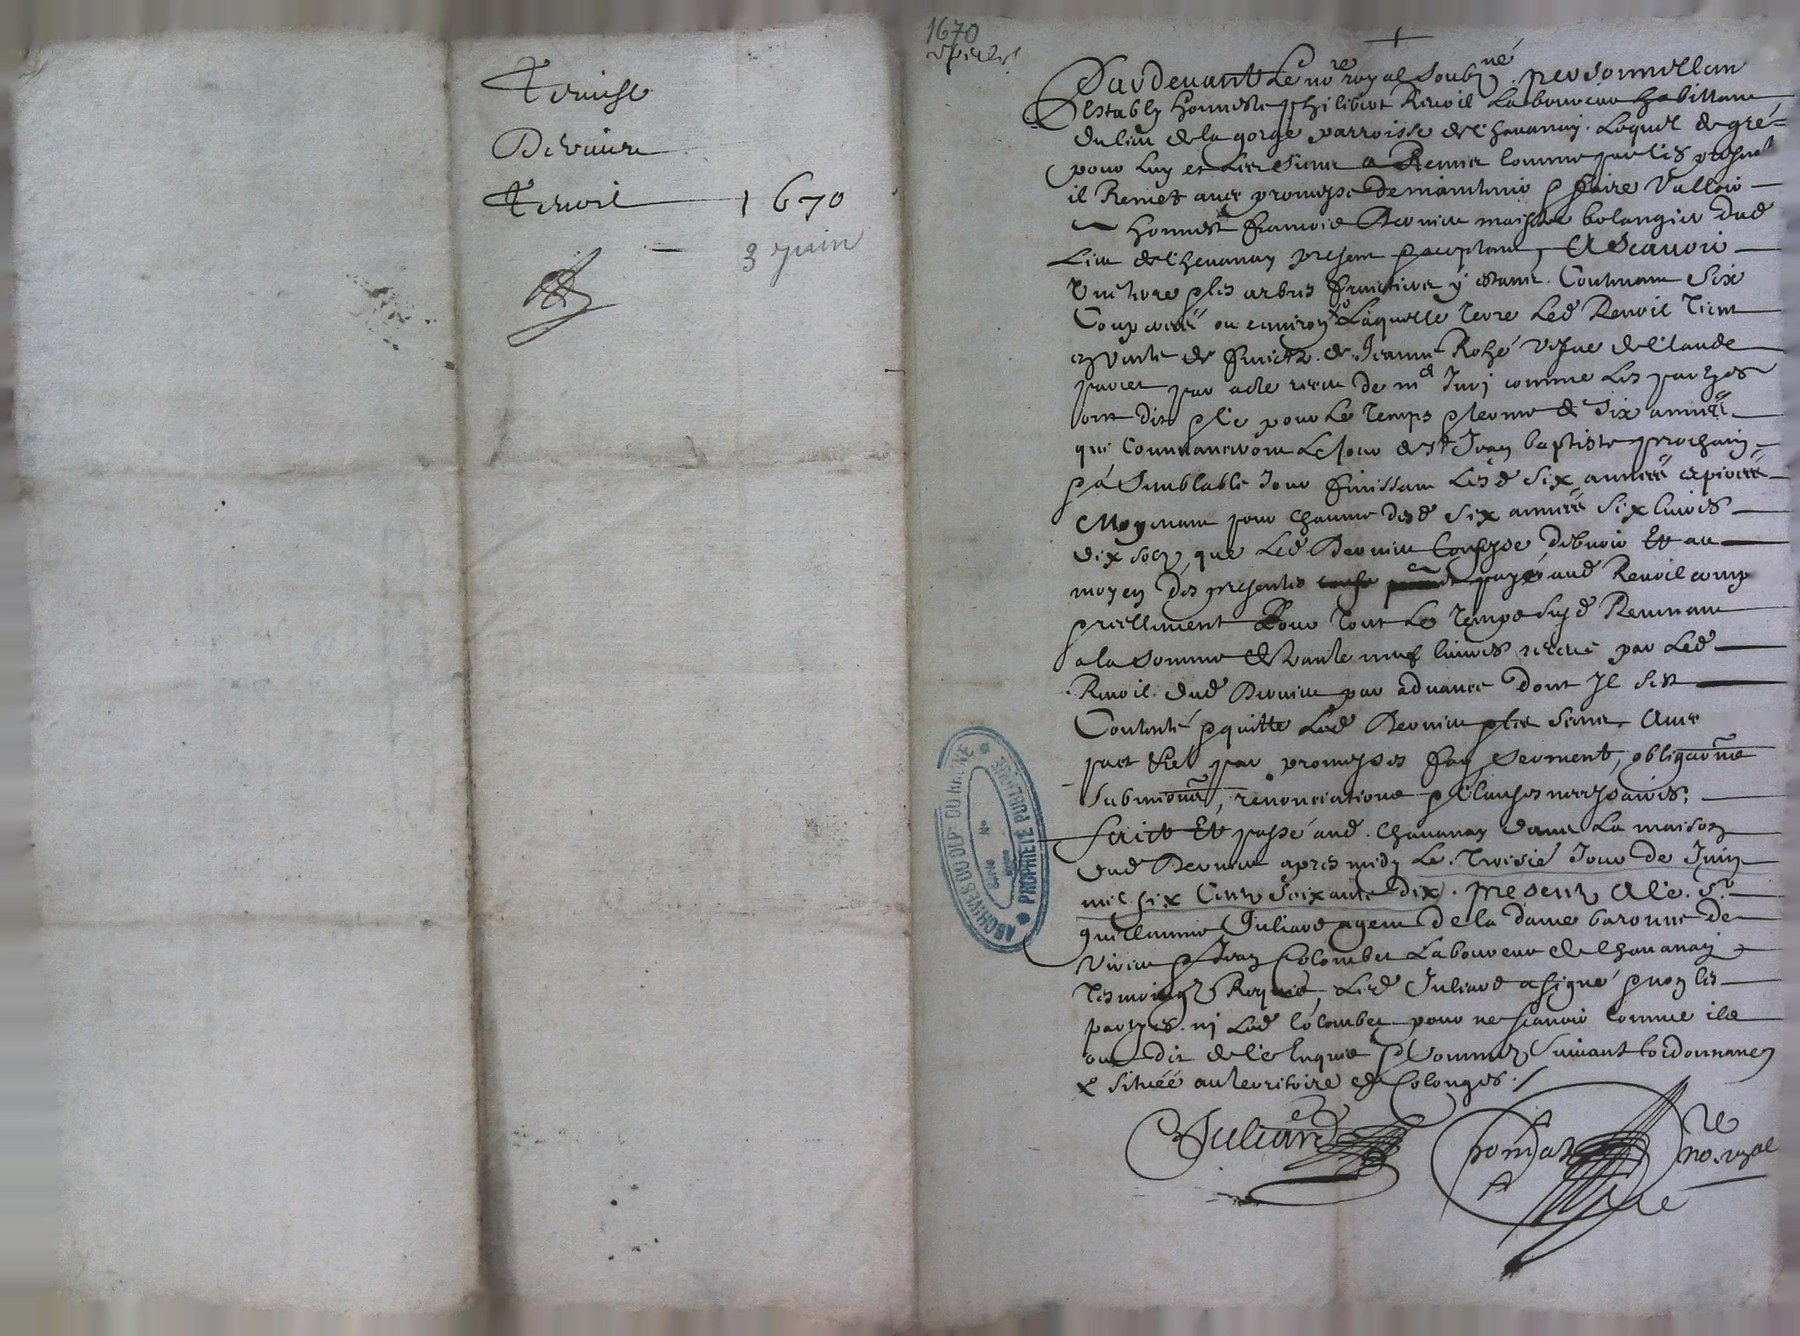 Remise
Devinu
Renoil 1670
3 juin
1670
Pardevant Le no.re royal soubz né personnellem
estably honneste philibert Renoil Laboureur habittant
du lieu de la gorge parroisse de Chavanay. Lequel de gré
pour luy et les siens a Remis comme par ces presentes
il Remet avec promesse de maintenir & faire Valloir
honneste françois Devinu maistre bolangier dud
Lieu de Chavanay present & acceptant, A Scavoir
Une terre & les arbres fruictiers y estant. Contenant Six
Coup ou environ Laquelle terre Led Renoil tient
de fruictz de Jeanne Rozé vefve de Claude
par acte receu de m.e comme Les partyes
ont dit & ce pour Le temps & terme de Six années
qui Commanceront Le jour de St Jean baptiste prochain
& a Semblable jour finissant Lesd Six années
Moyenant pour chacune desd Six années Six livres
dix solz, que Led Devinu Confesse debvoir Et au
moyen des presentes payé aud Renoil comp
& reellement Pour tout Le temps susd Revenant
a la somme de trante neuf livres receue par Led
Renoil dud Devinu par advance dont Il s'est
Contenté & quitte Led Devinu & les siens Avec
pact par promesses foy, serment, obligations
submions, renonciations & clauses necessaires.
Faict Et passé aud. Chavanay dans La maison
dud Devinu apres midy Le Troisie Jour de Juin
mil six Centz Soixante dix. presentz A ce. Sr
guillaume Juliard agent de la dame baronne de
Virieu & Jean Colombet Laboureur de Chavanay
Tesmoingz Requis, Led Juliard a signé & non les
partyes. ny Led Colombet pour ne scavoir comme ils
ont dit de ce Enquis & Sommez Suivant l'ordonnance
x située au territoire de Colonges.
Juliard
no. royal
ARCHIVES DU DEPT DU RHONE
PROPRIÉTÉ PUBLIQUE